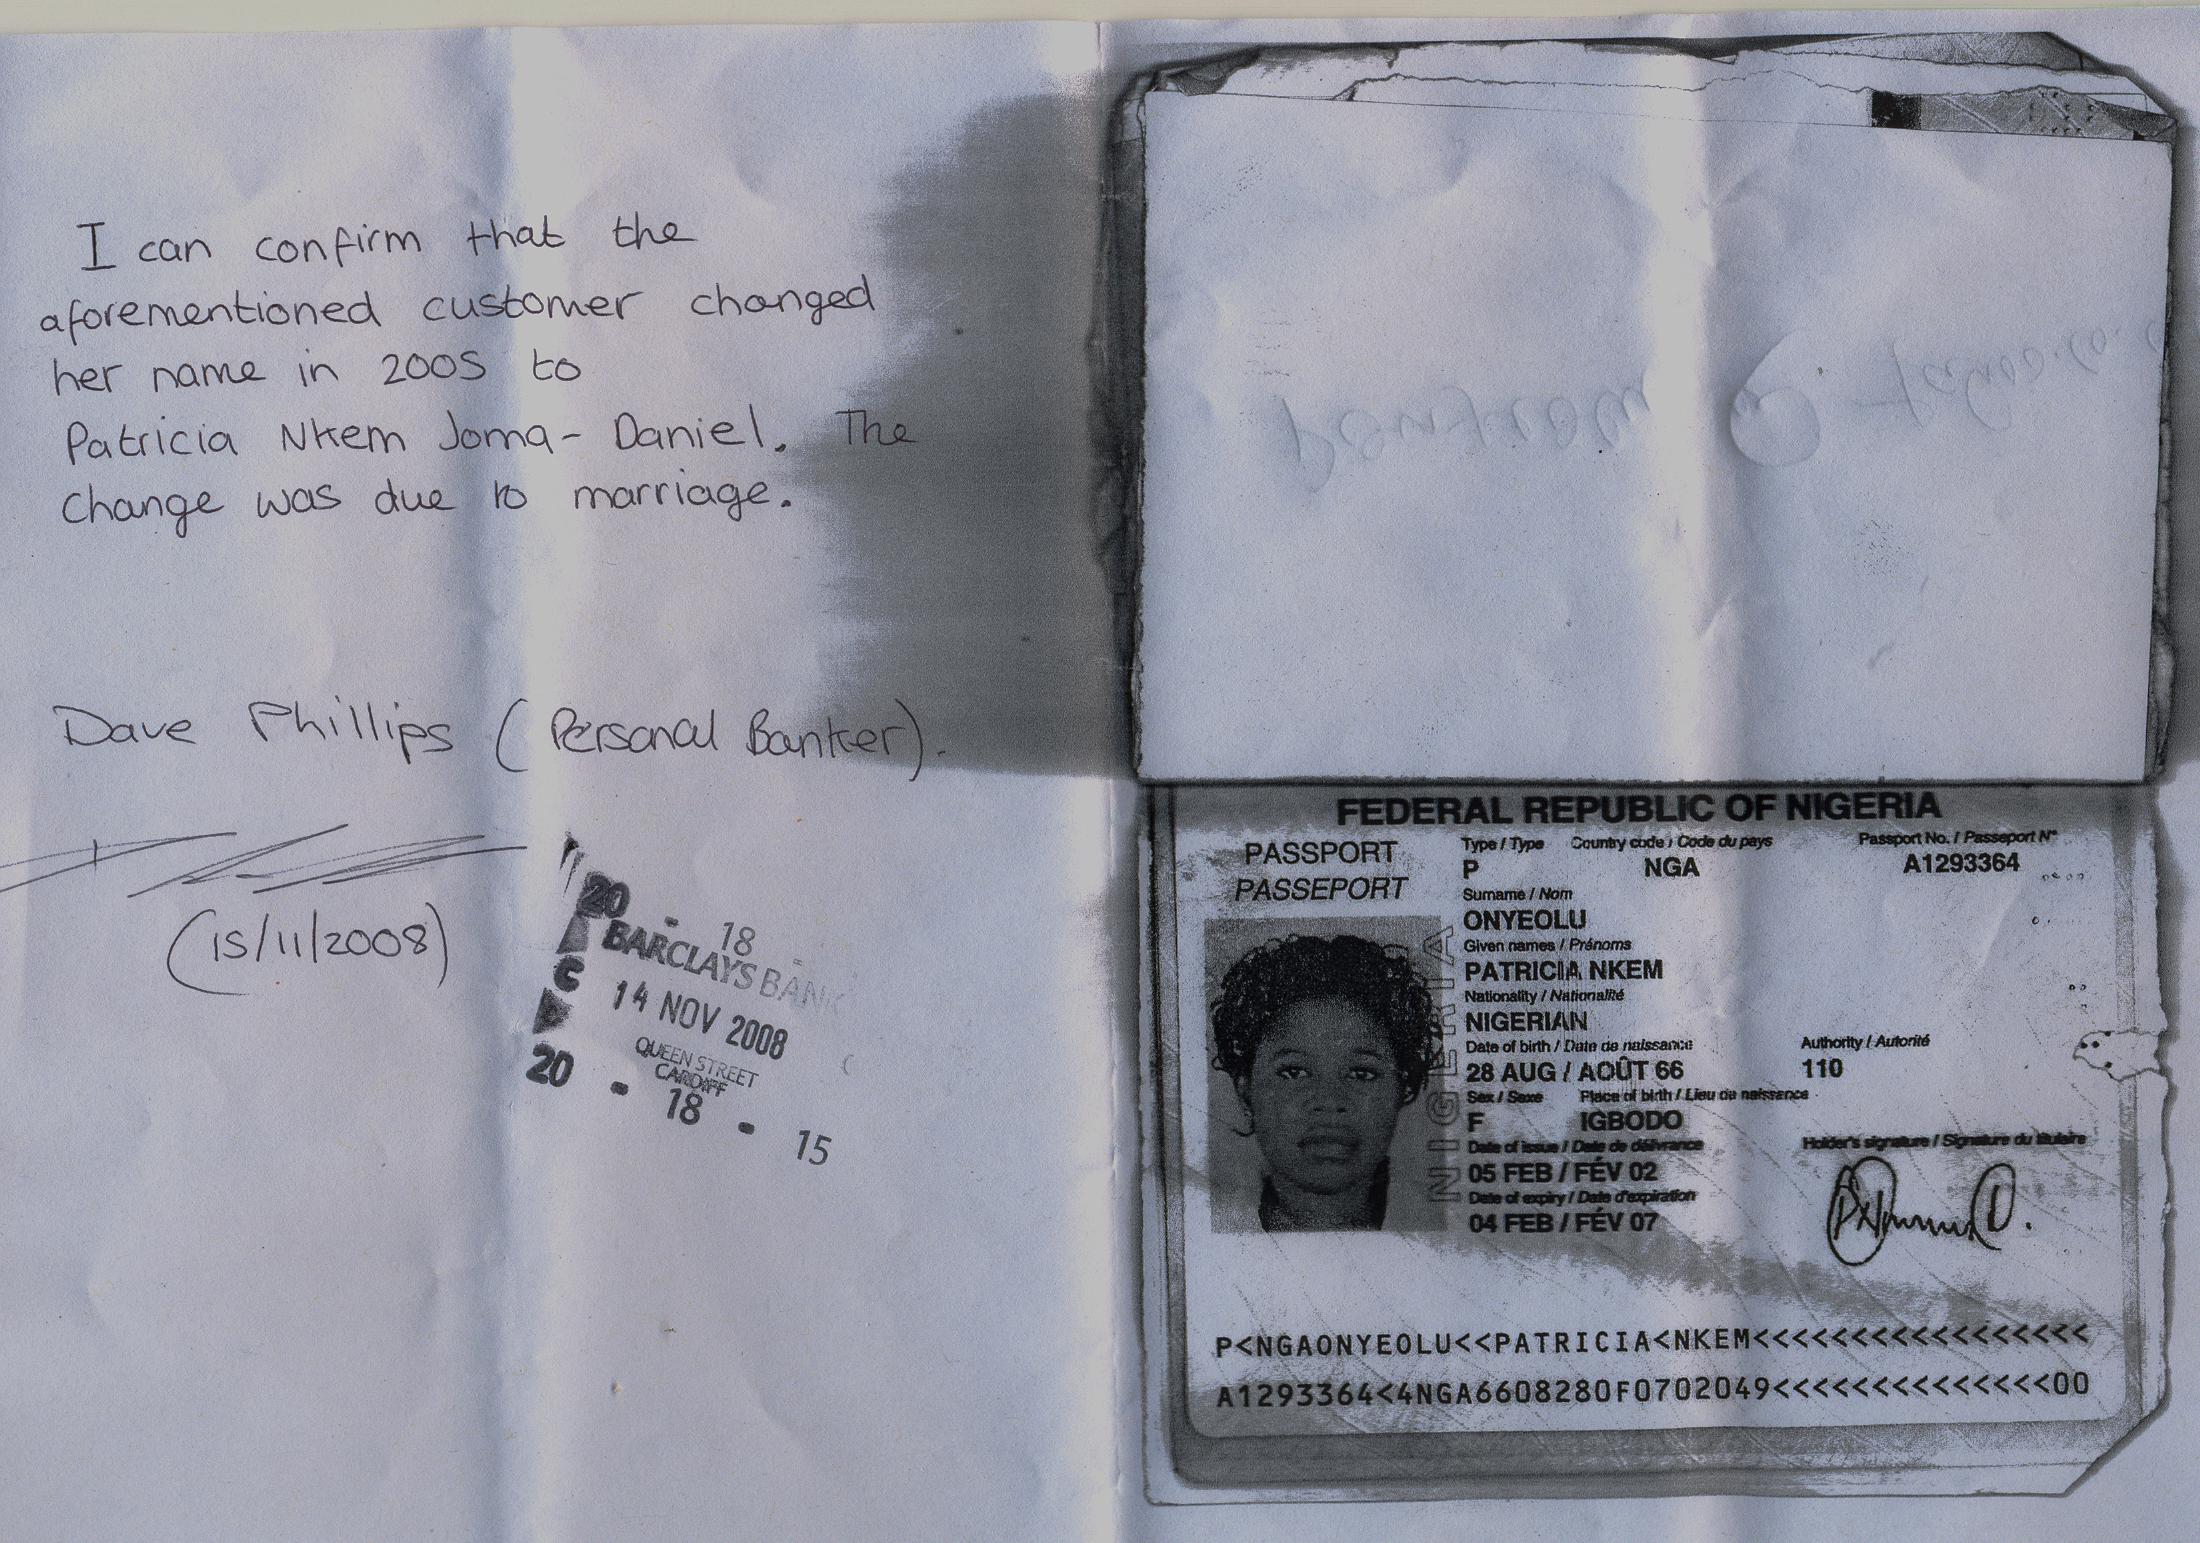 I can confirm that the
aforementioned customer changed
her name in 2005 to
Patricia Nkem Joma-Daniel. The
change was due to marriage.
Dave Phillips (Personal Banker).
(15/11/2008)
20 - 18 -
BARCLAYS BANK
14 NOV 2008
QUEEN STREET
CARDIFF
20 - 18 - 15
FEDERAL REPUBLIC OF NIGERIA
PASSPORT
PASSEPORT
Type / Type Country code / Code du pays Passport No. / Passeport N°
P NGA A1293364
Surname / Nom
ONYEOLU
Given names / Prénoms
PATRICIA NKEM
Nationality / Nationalité
NIGERIAN
Date of birth / Date de naissance Authority / Autorité
28 AUG / AOÛT 66 110
Sex / Sexe Place of birth / Lieu de naissance
F IGBODO
Date of issue / Date de délivrance Holder's signature / Signature du titulaire
05 FEB / FÉV 02
Date of expiry / Date d'expiration
04 FEB / FÉV 07
NIGERIA
P<NGAONYEOLU<<PATRICIA<NKEM<<<<<<<<<<<<<<<<<
A1293364<4NGA6608280F0702049<<<<<<<<<<<<<<00